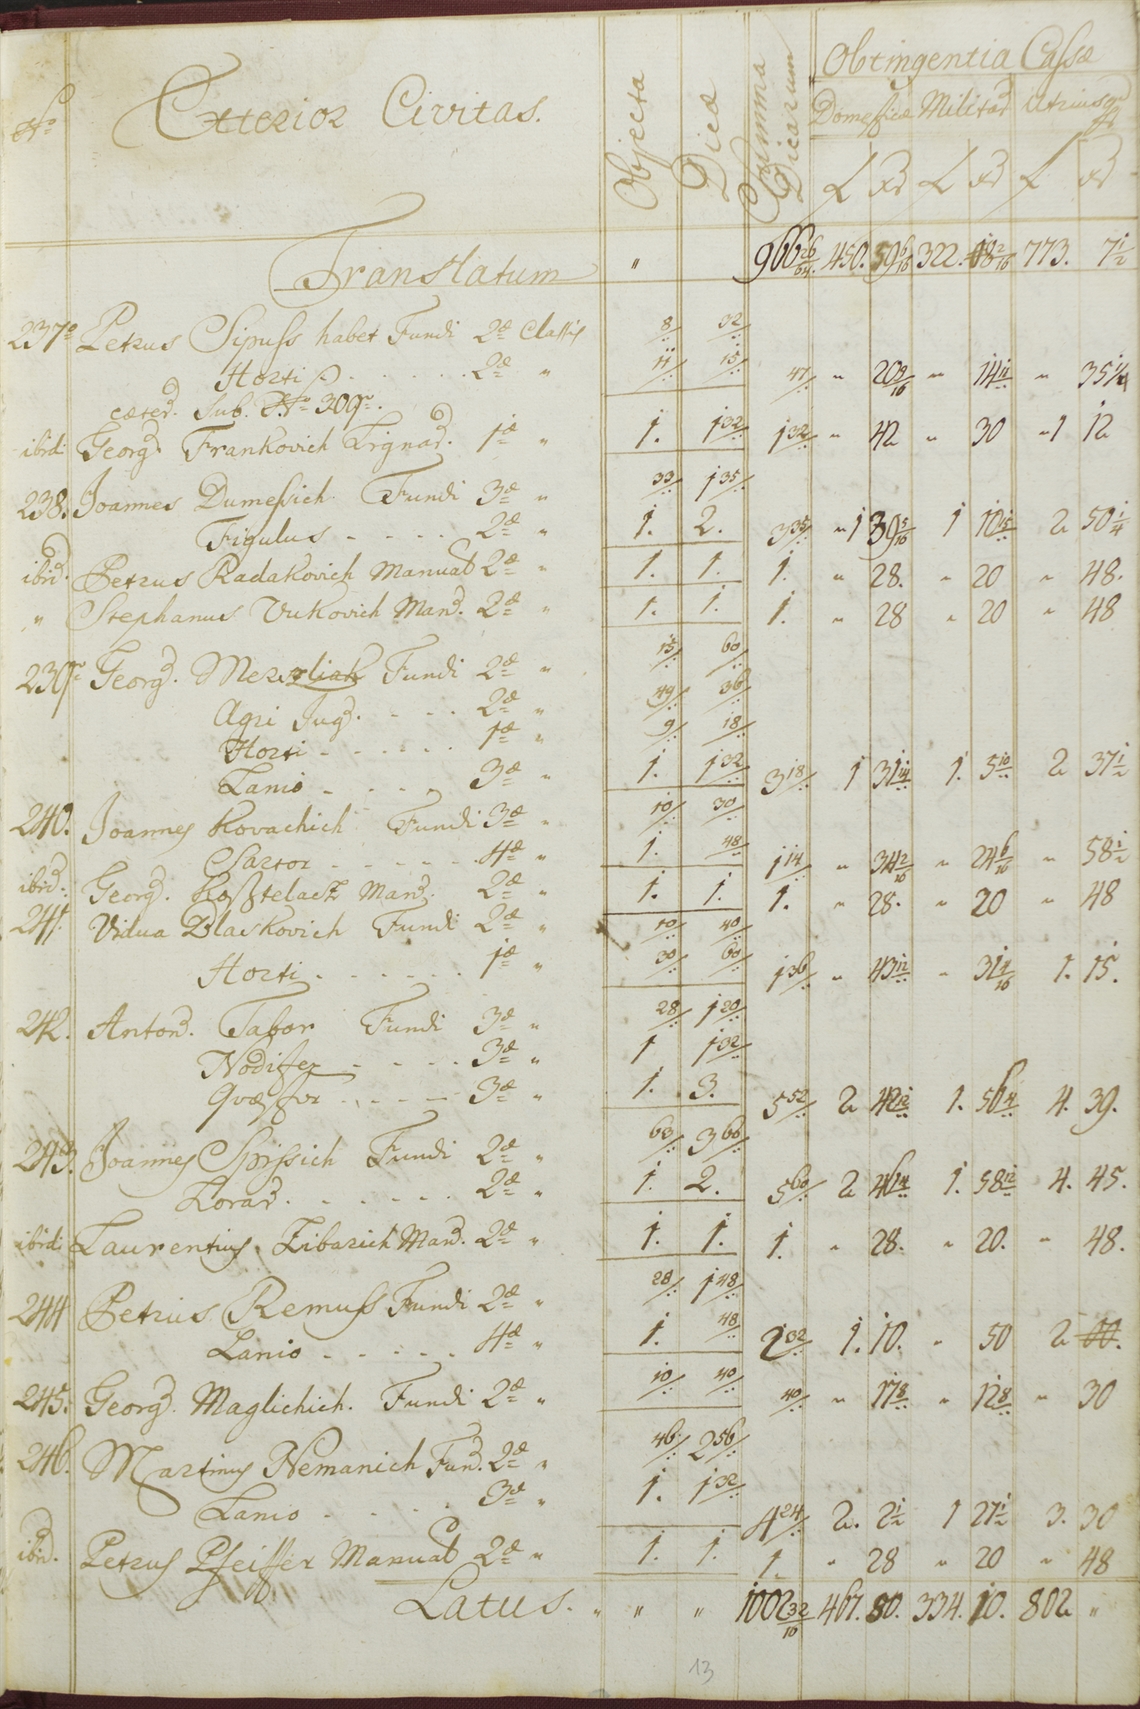 Nro Exterior Civitas. Objecta Dicæ Summa Dicarum Obtingentia Cassæ
Domesticæ Militar Utriusq
f xr f xr f xr
Translatum " 966 26/64 450. 59 6/16 322. 18 2/16 773. 7 1/2
237 Petrus Sipuss habet Fundi 2æ Classis 8 32
Horti 2æ " 11 15 47 " 20 9/16 " 14 11 " 35 1/4
cæter. Sub. Nro 309.
ibid Georg. Frankovich Lignar. 1æ " 1. 1 32 1 32 " 42 " 30 " 1 12
238. Joannes Dumessich Fundi 3æ " 33 1 35
Figulus - - - - 2æ " 1. 2. 3 35 " 1 39 5/16 1 10 15 2 50 1/4
ibid. Petrus Radakovich Manual 2æ " 1. 1. 1. " 28. " 20 " 48.
" Stephanus Vukovich Man. 2æ " 1. 1. 1. " 28 " 20 " 48
239 Georg. Merzliak Fundi 2æ " 15 60
Agri Jug. - - - 2æ " 49 36
Horti - - - - - 1æ " 9 18
Lanio - - - - 3æ " 1. 1 32 3 18 1 31 14 1. 5 10 2 37 1/2
240. Joannes Kovachich Fundi 3æ " 10 30
Sartor - - - - - 4æ " 1. 48 1 14 " 34 2/16 " 24 6/16 " 58 1/2
ibid. Georg. Kosstelacz Man. 2æ " 1. 1. 1. " 28. " 20 " 48
241. Vidua Blaskovich Fundi 2æ " 10 40
Horti - - - - - 1æ " 30 60 1 36 " 43 12 " 31 4/16 1. 15.
242. Anton. Tabor Fundi 3æ " 28 1 20
Nodifex - - - - 3æ " 1 1 32
Quæstor - - - - 3æ " 1. 3. 5 52 2 42 12 1. 56 4 4. 39.
243. Joannes Spissich Fundi 2æ " 63 3 60
Lorar. - - - - - - 2æ " 1. 2. 5 60 2 46 14 1. 58 12 4. 45.
ibid Laurentius Zibarich Man. 2æ " 1. 1. 1. " 28. " 20. " 48.
244 Petrus Remuss Fundi 2æ " 28 1 48
Lanio - - - - - 4æ " 1. 48 2 32 1. 10. " 50 2
245. Georg. Maglichich. Fundi 2æ " 10 40 40 " 17 8 " 12 8 " 30
246. Martinus Nemanich Fun. 2æ " 46 2 56
Lanio - - - - 3æ " 1. 1 32 4 24 2. 2 1/2 1 27 1/2 3. 30
ibid. Petrus Pfeiffer Manual 2æ " 1. 1. 1. " 28 " 20 " 48
Latus. " " " 1002 32/16 467. 50. 334. 10. 802 "
13